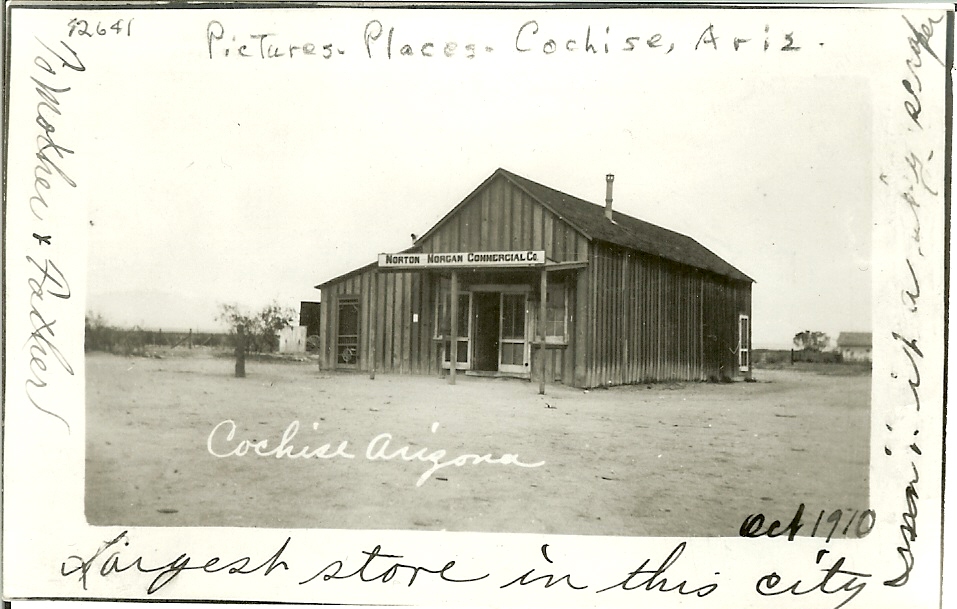 92641
Pictures. Places. Cochise, Ariz.
To Mother & Father
NORTON MORGAN COMMERCIAL CO.
Cochise Arizona
Oct 1910
Largest store in this city
it a scraper